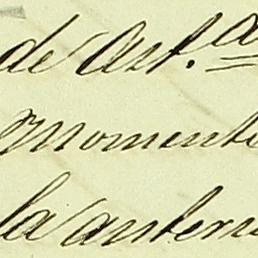 de Art.a
momento
la anteri